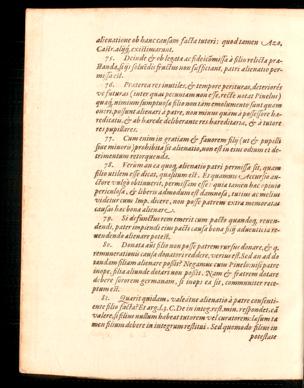 alienatione ob hanc causam facta tutori: quod tamen Azo,
Castr. aliique existimarunt.
75. Deinde & ob legata ac fideicommissa à filio relicta præ-
standa, si ijs soluendis fructus non sufficiant, patri alienatio per-
missa est.
76. Præterea res inutiles, & tempore perituras, deteriores
ve futuras (inter quas pecuniam non esse, recte notat Pinelus)
quæq; nimium sumptuosæ filio non tam emolumento sunt quam
oneri, possunt alienari à patre, non minus quàm a possessore hæ-
reditatis, & ab hærede deliberante res hæreditariæ, & à tutore
res pupillares.
77. Cum enim in gratiam & fauorem filij (ut & pupilli
siue minoris) prohibita sit alienatio, non est in eius odium et de-
trimentum retorquenda.
78. Verum an ea quoq; alienatio patri permissa sit, quam
filio utilem esse dicat, quæsitum est. Et quamuis Accursio au-
ctore vulgò obtinuerit, permissam esse: quia tamen hæc opinio
periculosa, & liberis admodum est damnosa, tutius ac melius
videtur cum Imp. dicere, non posse patrem extra memoratas
causas hæc bona alienare.
79. Si defunctus rem emerit cum pacto quandoq; reuen-
dendi, pater impiendi eius pacto causa bona filij aduentitia re-
uendendo alienare potest.
80. Donata aut filio non posse patrem rursus donare, & q
remunerationis causa donatori reddere, verius est. Sed an ad do
tandum filiam alienare possit? Negamus cum Pinelo: nisi patre
inope, filia aliunde dotari non possit. Nam & fratrem dotare
debere sororem germanam, si inops ea sit, communiter rece-
ptum est.
81. Quærit quidem, valeatne alienatio à patre consenti-
ente filio facta? Et arg. l. 3. C. De in integ. rest. min. respondet. eã
valere, si filius nullum habeat tutorem vel curatorem: læsum ta
men filium debere in integrum restitui. Sed quomodo filius in
potestate